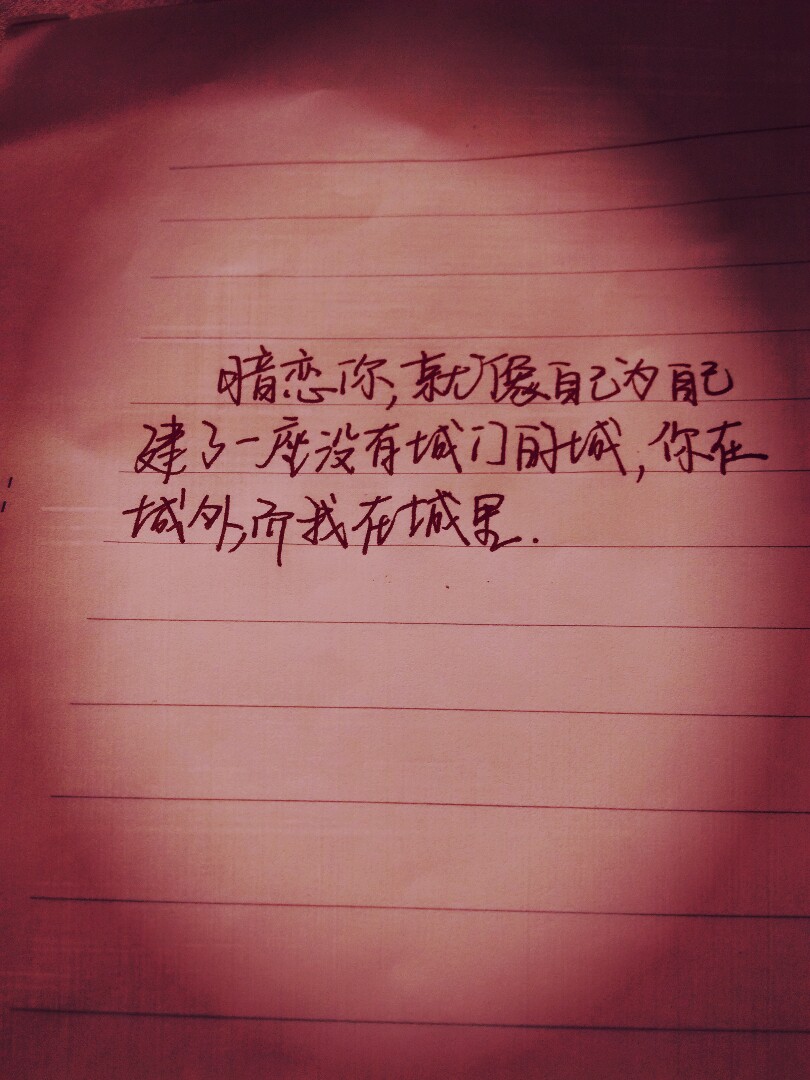 暗恋你,就像自己为自己
建了一座没有城门的城,你在
城外,而我在城里.